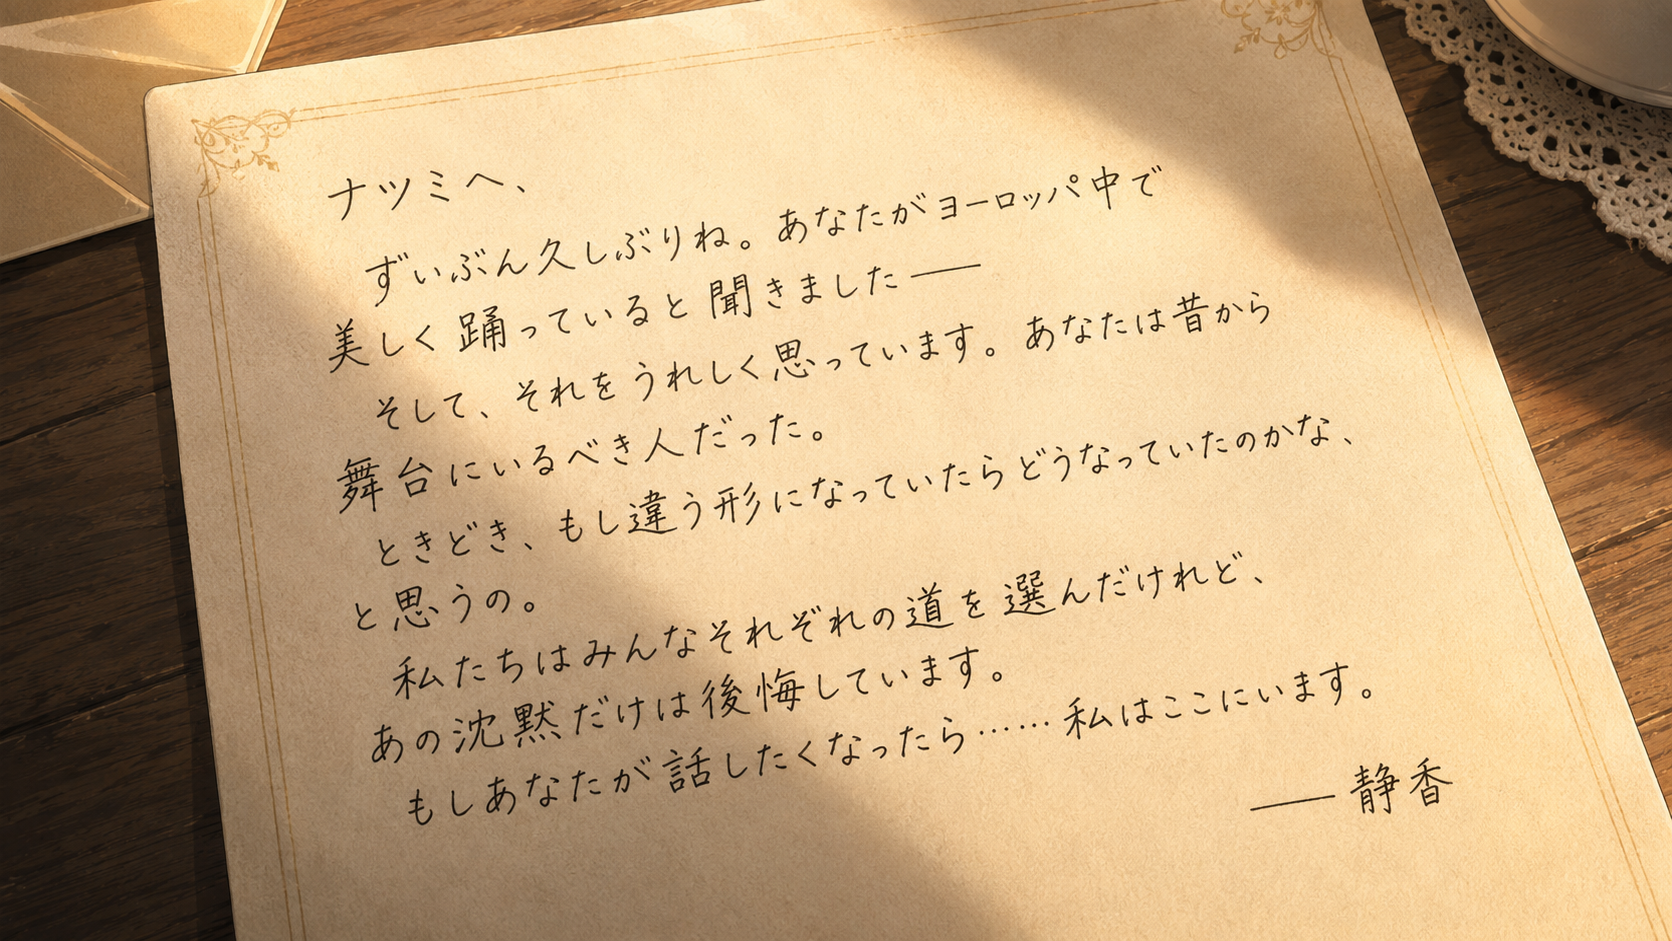 ナツミへ、
ずいぶん久しぶりね。あなたがヨーロッパ中で
美しく踊っていると聞きました――
そして、それをうれしく思っています。あなたは昔から
舞台にいるべき人だった。
ときどき、もし違う形になっていたらどうなっていたのかな、
と思うの。
私たちはみんなそれぞれの道を選んだけれど、
あの沈黙だけは後悔しています。
もしあなたが話したくなったら……私はここにいます。
――静香